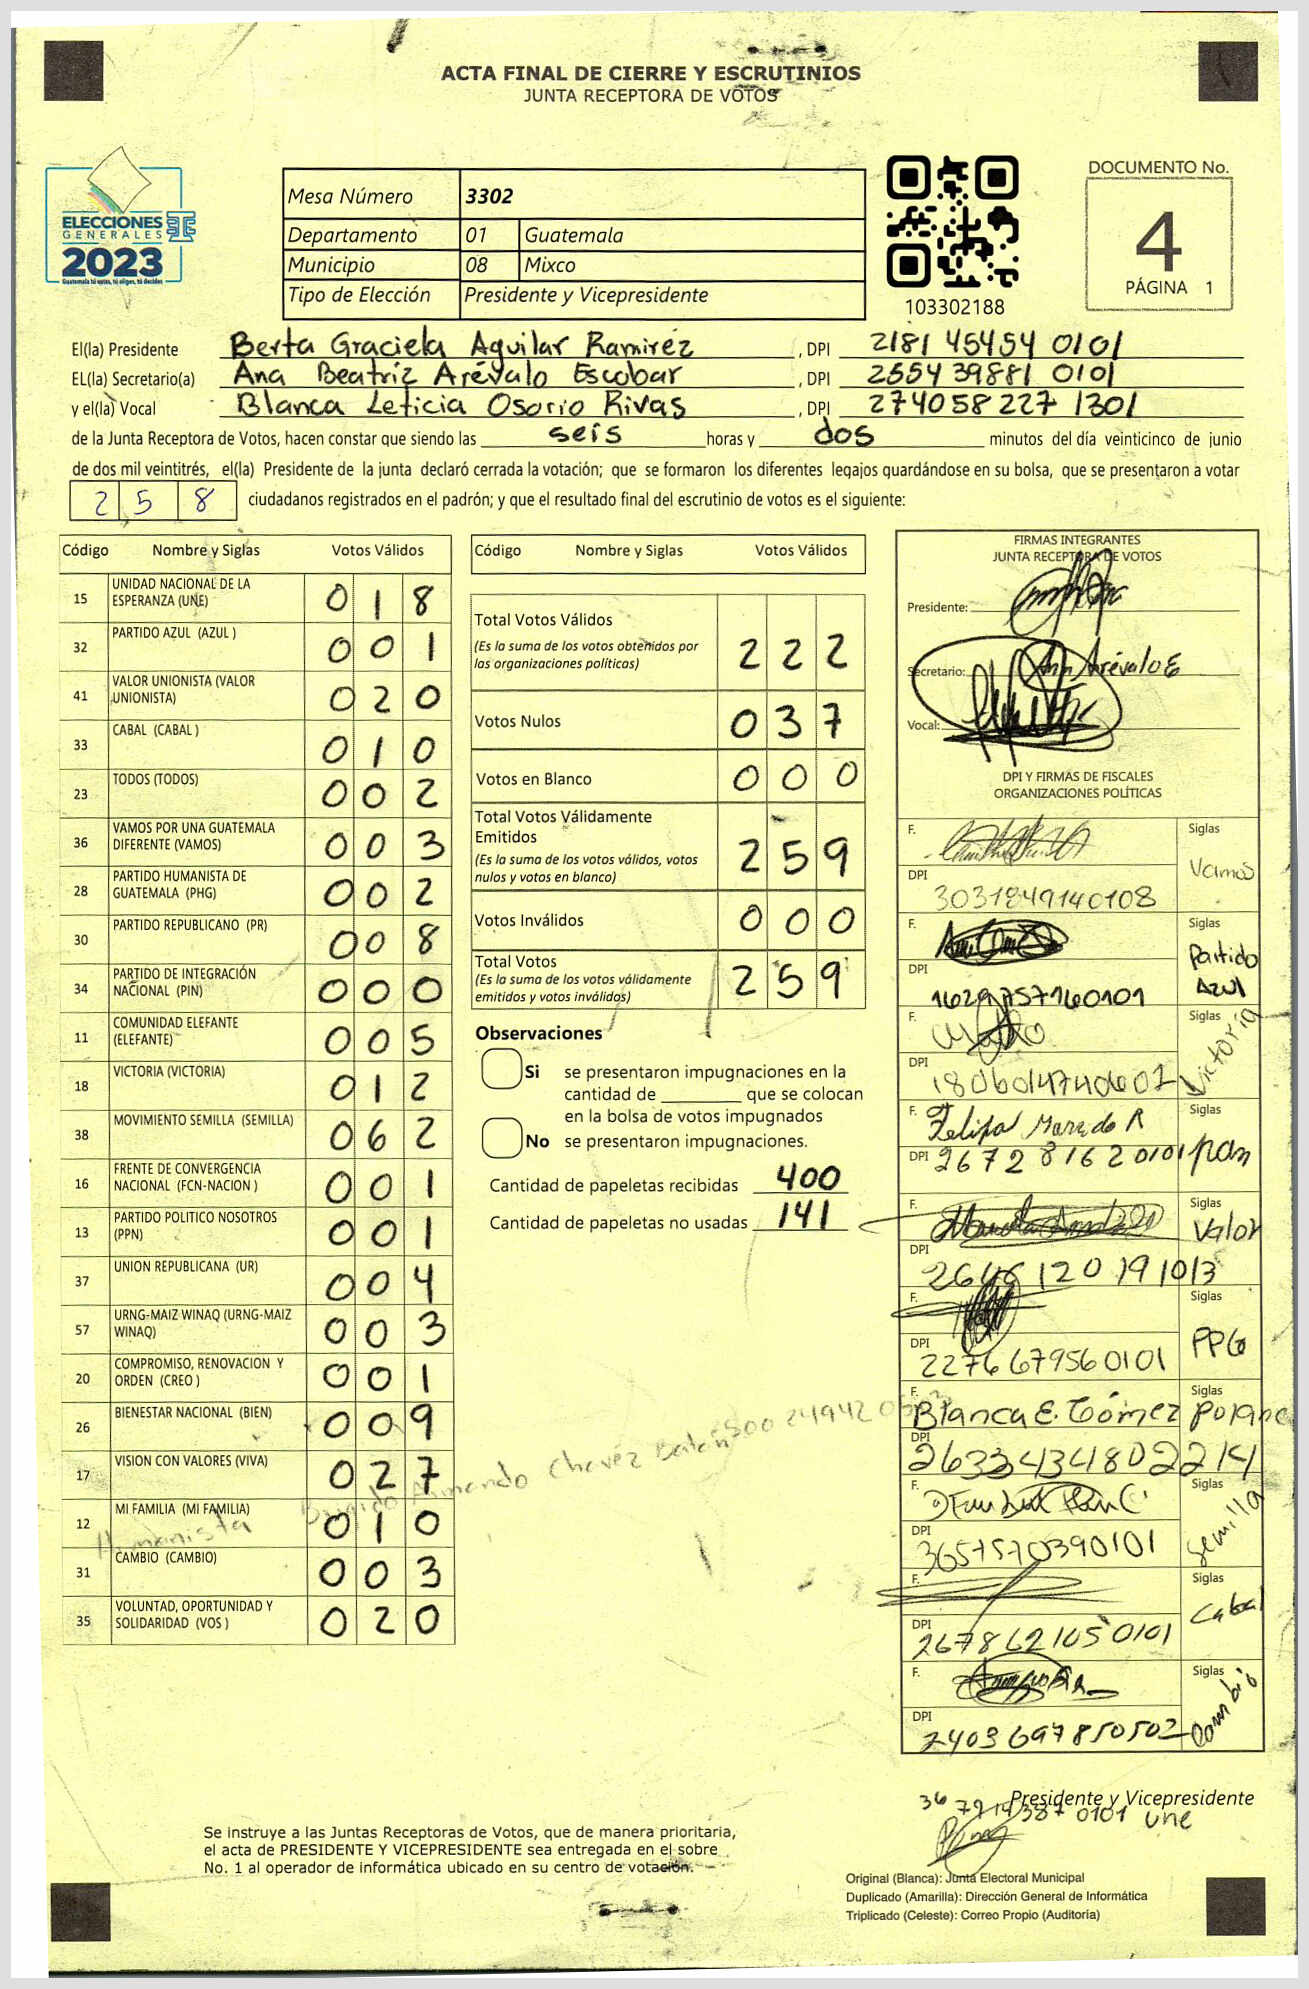 ACTA FINAL DE CIERRE Y ESCRUTINIOS
JUNTA RECEPTORA DE VOTOS
ELECCIONES
GENERALES
2023
Guatemala tú votas, tú eliges, tú decides
Mesa Número 3302
Departamento 01 Guatemala
Municipio 08 Mixco
Tipo de Elección Presidente y Vicepresidente
103302188
DOCUMENTO No.
4
PÁGINA 1
El(la) Presidente Berta Graciela Aguilar Ramirez, DPI 2181 45454 0101
EL(la) Secretario(a) Ana Beatriz Arévalo Escobar, DPI 2554 39881 0101
y el(la) Vocal Blanca Leticia Osorio Rivas, DPI 274058227 1301
de la Junta Receptora de Votos, hacen constar que siendo las seis horas y dos minutos del día veinticinco de junio
de dos mil veintitrés, el(la) Presidente de la junta declaró cerrada la votación; que se formaron los diferentes legajos guardándose en su bolsa, que se presentaron a votar
258 ciudadanos registrados en el padrón; y que el resultado final del escrutinio de votos es el siguiente:
Código Nombre y Siglas Votos Válidos
15 UNIDAD NACIONAL DE LA ESPERANZA (UNE) 018
32 PARTIDO AZUL (AZUL ) 001
41 VALOR UNIONISTA (VALOR UNIONISTA) 020
33 CABAL (CABAL ) 010
23 TODOS (TODOS) 002
36 VAMOS POR UNA GUATEMALA DIFERENTE (VAMOS) 003
28 PARTIDO HUMANISTA DE GUATEMALA (PHG) 002
30 PARTIDO REPUBLICANO (PR) 008
34 PARTIDO DE INTEGRACIÓN NACIONAL (PIN) 000
11 COMUNIDAD ELEFANTE (ELEFANTE) 005
18 VICTORIA (VICTORIA) 012
38 MOVIMIENTO SEMILLA (SEMILLA) 062
16 FRENTE DE CONVERGENCIA NACIONAL (FCN-NACION ) 001
13 PARTIDO POLITICO NOSOTROS (PPN) 001
37 UNION REPUBLICANA (UR) 004
57 URNG-MAIZ WINAQ (URNG-MAIZ WINAQ) 003
20 COMPROMISO, RENOVACION Y ORDEN (CREO ) 001
26 BIENESTAR NACIONAL (BIEN) 009
17 VISION CON VALORES (VIVA) 027
12 MI FAMILIA (MI FAMILIA) 010
31 CAMBIO (CAMBIO) 003
35 VOLUNTAD, OPORTUNIDAD Y SOLIDARIDAD (VOS ) 020
Humanista Brigido Armando Chavez
Código Nombre y Siglas Votos Válidos
Total Votos Válidos 222
(Es la suma de los votos obtenidos por
las organizaciones políticas)
Votos Nulos 037
Votos en Blanco 000
Total Votos Válidamente
Emitidos 259
(Es la suma de los votos válidos, votos
nulos y votos en blanco)
Votos Inválidos 000
Total Votos 259
(Es la suma de los votos válidamente
emitidos y votos inválidos)
Observaciones
Si se presentaron impugnaciones en la
cantidad de ________ que se colocan
en la bolsa de votos impugnados
No se presentaron impugnaciones.
Cantidad de papeletas recibidas 400
Cantidad de papeletas no usadas 141
FIRMAS INTEGRANTES
JUNTA RECEPTORA DE VOTOS
Presidente:
Secretario: Ana Arévalo E
Vocal:
DPI Y FIRMAS DE FISCALES
ORGANIZACIONES POLÍTICAS
F. Siglas Vamos
DPI 3031849140108
F. Siglas Partido Azul
DPI
F. Siglas Victoria
DPI
F. Felipa R Siglas
DPI 2672 8162 0101
F. Siglas Valor
DPI
F. Siglas PPG
DPI 2276 67956 0101
F. Blanca E. Gómez Siglas
DPI 2633434802214
F. Siglas Semilla
DPI 3657570390101
F. Siglas Cabal
DPI 2678621050101
F. Siglas Cambio
DPI 2403697850502
Presidente y Vicepresidente
0101 une
Se instruye a las Juntas Receptoras de Votos, que de manera prioritaria,
el acta de PRESIDENTE Y VICEPRESIDENTE sea entregada en el sobre
No. 1 al operador de informática ubicado en su centro de votación.
Original (Blanca): Junta Electoral Municipal
Duplicado (Amarilla): Dirección General de Informática
Triplicado (Celeste): Correo Propio (Auditoría)